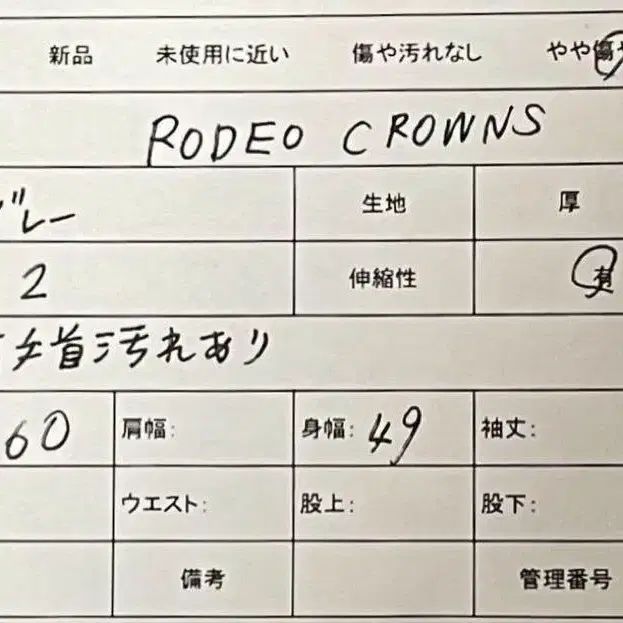 新品 未使用に近い 傷や汚れなし やや傷
RODEO CROWNS
グレー 生地 厚
2 伸縮性 有
手首汚れあり
60 肩幅: 身幅: 49 袖丈:
ウエスト: 股上: 股下:
備考 管理番号